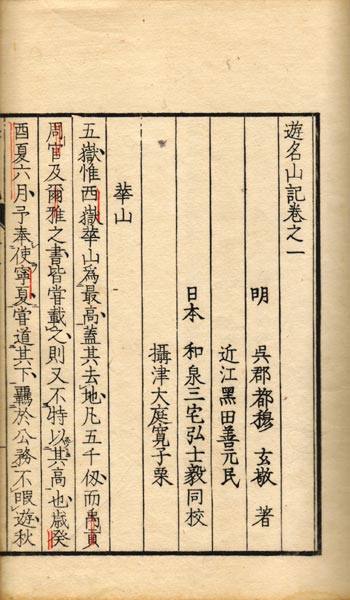 遊名山記卷之一
明　吳郡都穆　玄敬　著
近江黑田善元民
日本　和泉三宅弘士毅同校
攝津大庭寬子栗
華山
五嶽惟西嶽華山爲最高蓋其去地凡五千仞而禹貢
周官及爾雅之書皆嘗載之則又不特以其高也歲癸
酉夏六月予奉使寧夏嘗道其下羈於公務不暇遊秋